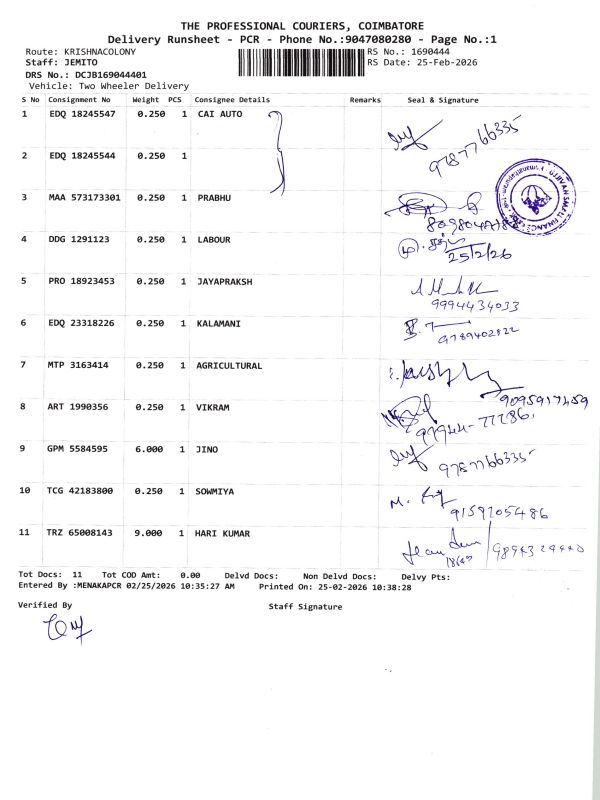 THE PROFESSIONAL COURIERS, COIMBATORE
Delivery Runsheet - PCR - Phone No.:9047080280 - Page No.:1
Route: KRISHNACOLONY RS No.: 1690444
Staff: JEMITO RS Date: 25-Feb-2026
DRS No.: DCJB169044401
Vehicle: Two Wheeler Delivery
S No Consignment No Weight PCS Consignee Details Remarks Seal & Signature
1 EDQ 18245547 0.250 1 CAI AUTO
9787766335
2 EDQ 18245544 0.250 1
3 MAA 573173301 0.250 1 PRABHU
4 DDG 1291123 0.250 1 LABOUR
25/2/26
5 PRO 18923453 0.250 1 JAYAPRAKSH
9994434033
6 EDQ 23318226 0.250 1 KALAMANI
9789402822
7 MTP 3163414 0.250 1 AGRICULTURAL
9095917459
8 ART 1990356 0.250 1 VIKRAM
97944-77286
9 GPM 5584595 6.000 1 JINO
9787766335
10 TCG 42183800 0.250 1 SOWMIYA
9159205486
11 TRZ 65008143 9.000 1 HARI KUMAR
Tot Docs: 11 Tot COD Amt: 0.00 Delvd Docs: Non Delvd Docs: Delvy Pts:
Entered By :MENAKAPCR 02/25/2026 10:35:27 AM Printed On: 25-02-2026 10:38:28
Verified By Staff Signature